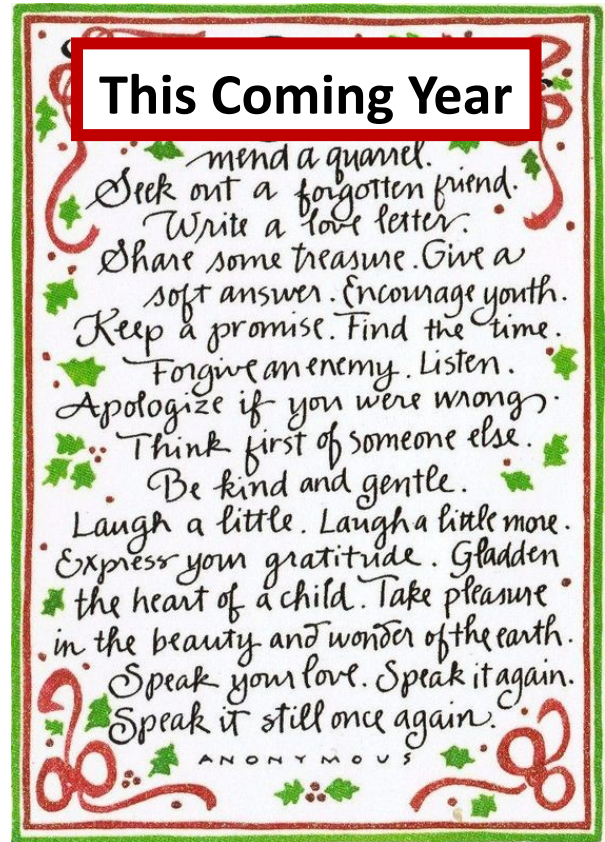 This Coming Year
mend a quarrel.
Seek out a forgotten friend.
Write a love letter.
Share some treasure. Give a
soft answer. Encourage youth.
Keep a promise. Find the time.
Forgive an enemy. Listen.
Apologize if you were wrong.
Think first of someone else.
Be kind and gentle.
Laugh a little. Laugh a little more.
Express your gratitude. Gladden
the heart of a child. Take pleasure
in the beauty and wonder of the earth.
Speak your love. Speak it again.
Speak it still once again.
ANONYMOUS